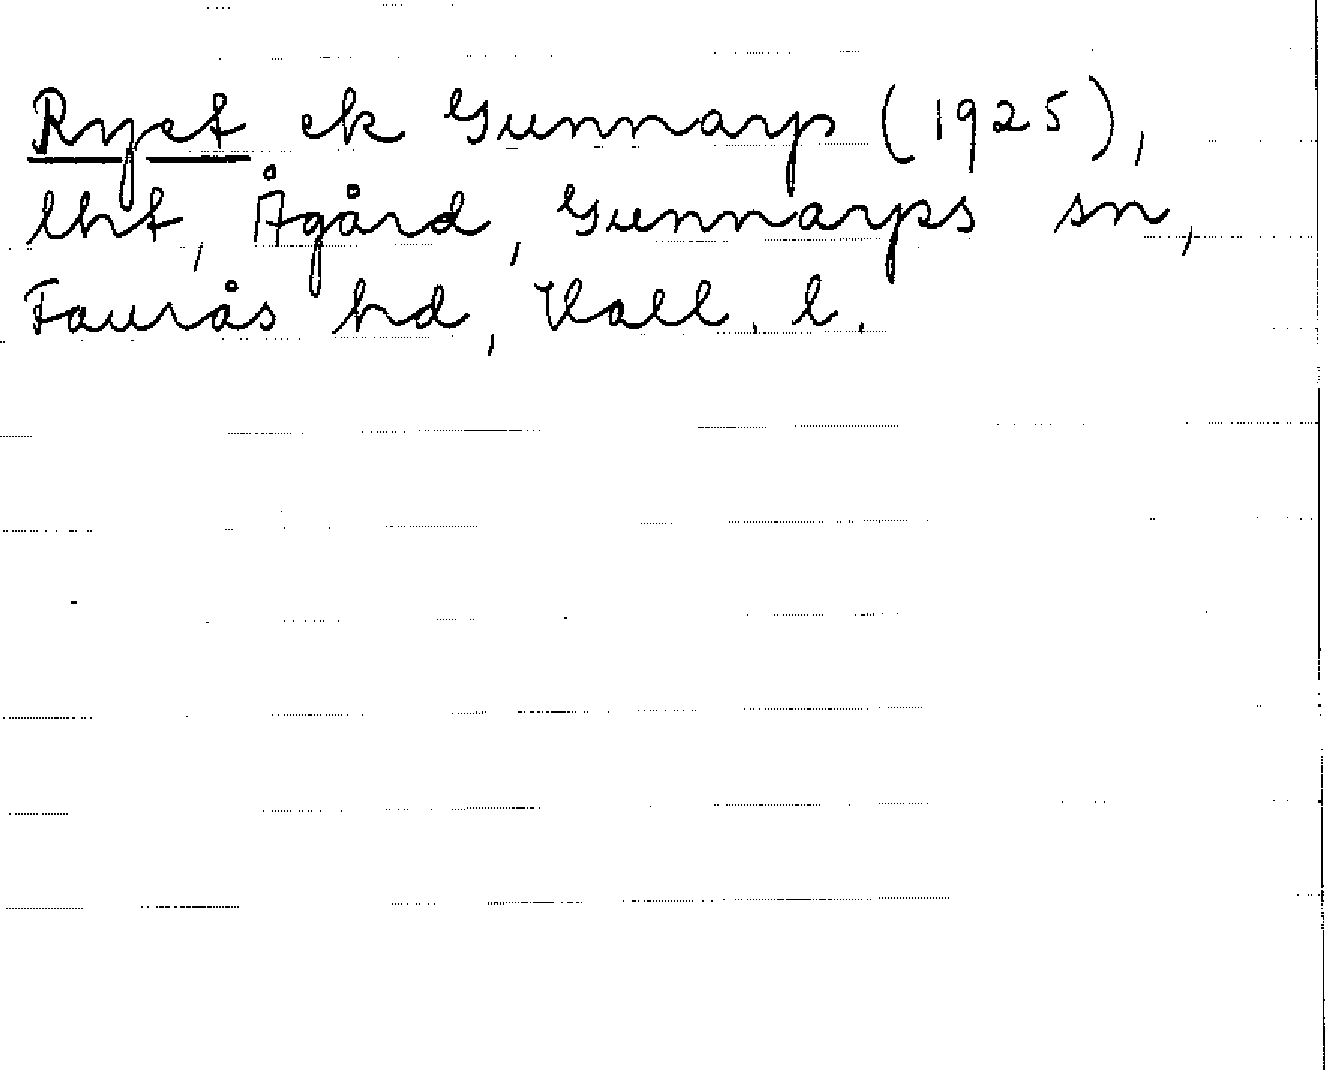 Ryet ek Gunnarp (1925),
lht, Ågård, Gunnarps sn,
Faurås hd, Hall. l.